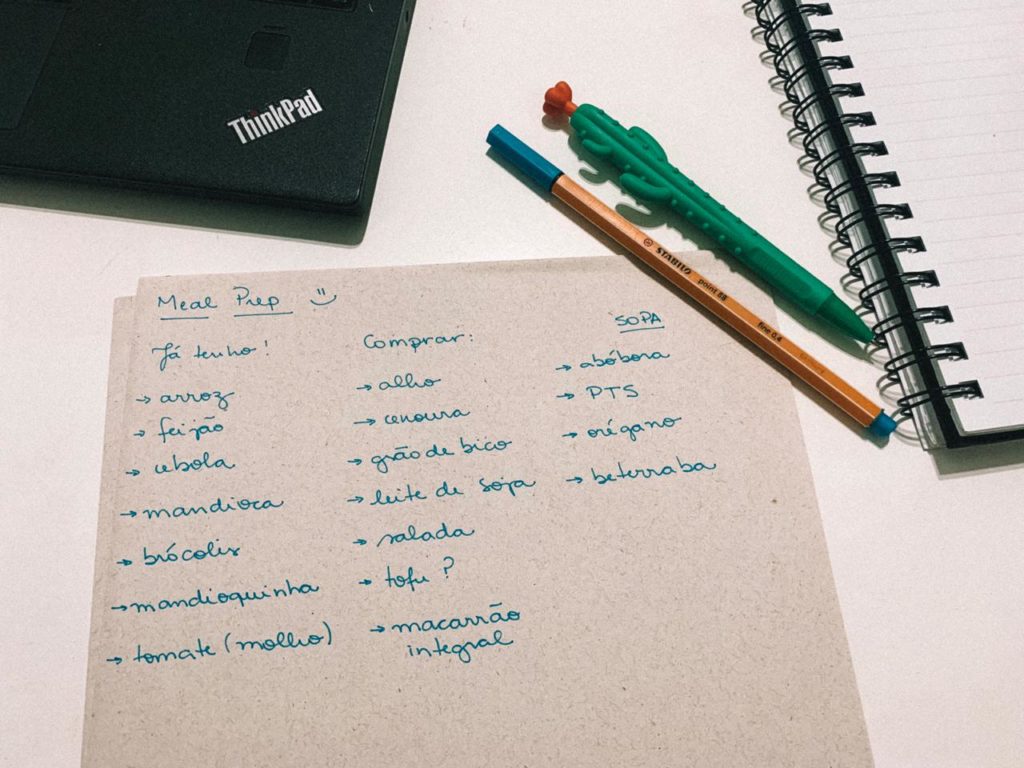 ThinkPad
STABILO
point 88
fine 0.4
Meal Prep :)
Já tenho!
→ arroz
→ feijão
→ cebola
→ mandioca
→ brócolis
→ mandioquinha
→ tomate (molho)
Comprar:
→ alho
→ cenoura
→ grão de bico
→ leite de soja
→ salada
→ tofu ?
→ macarrão
integral
SOPA
→ abóbora
→ PTS
→ orégano
→ beterraba